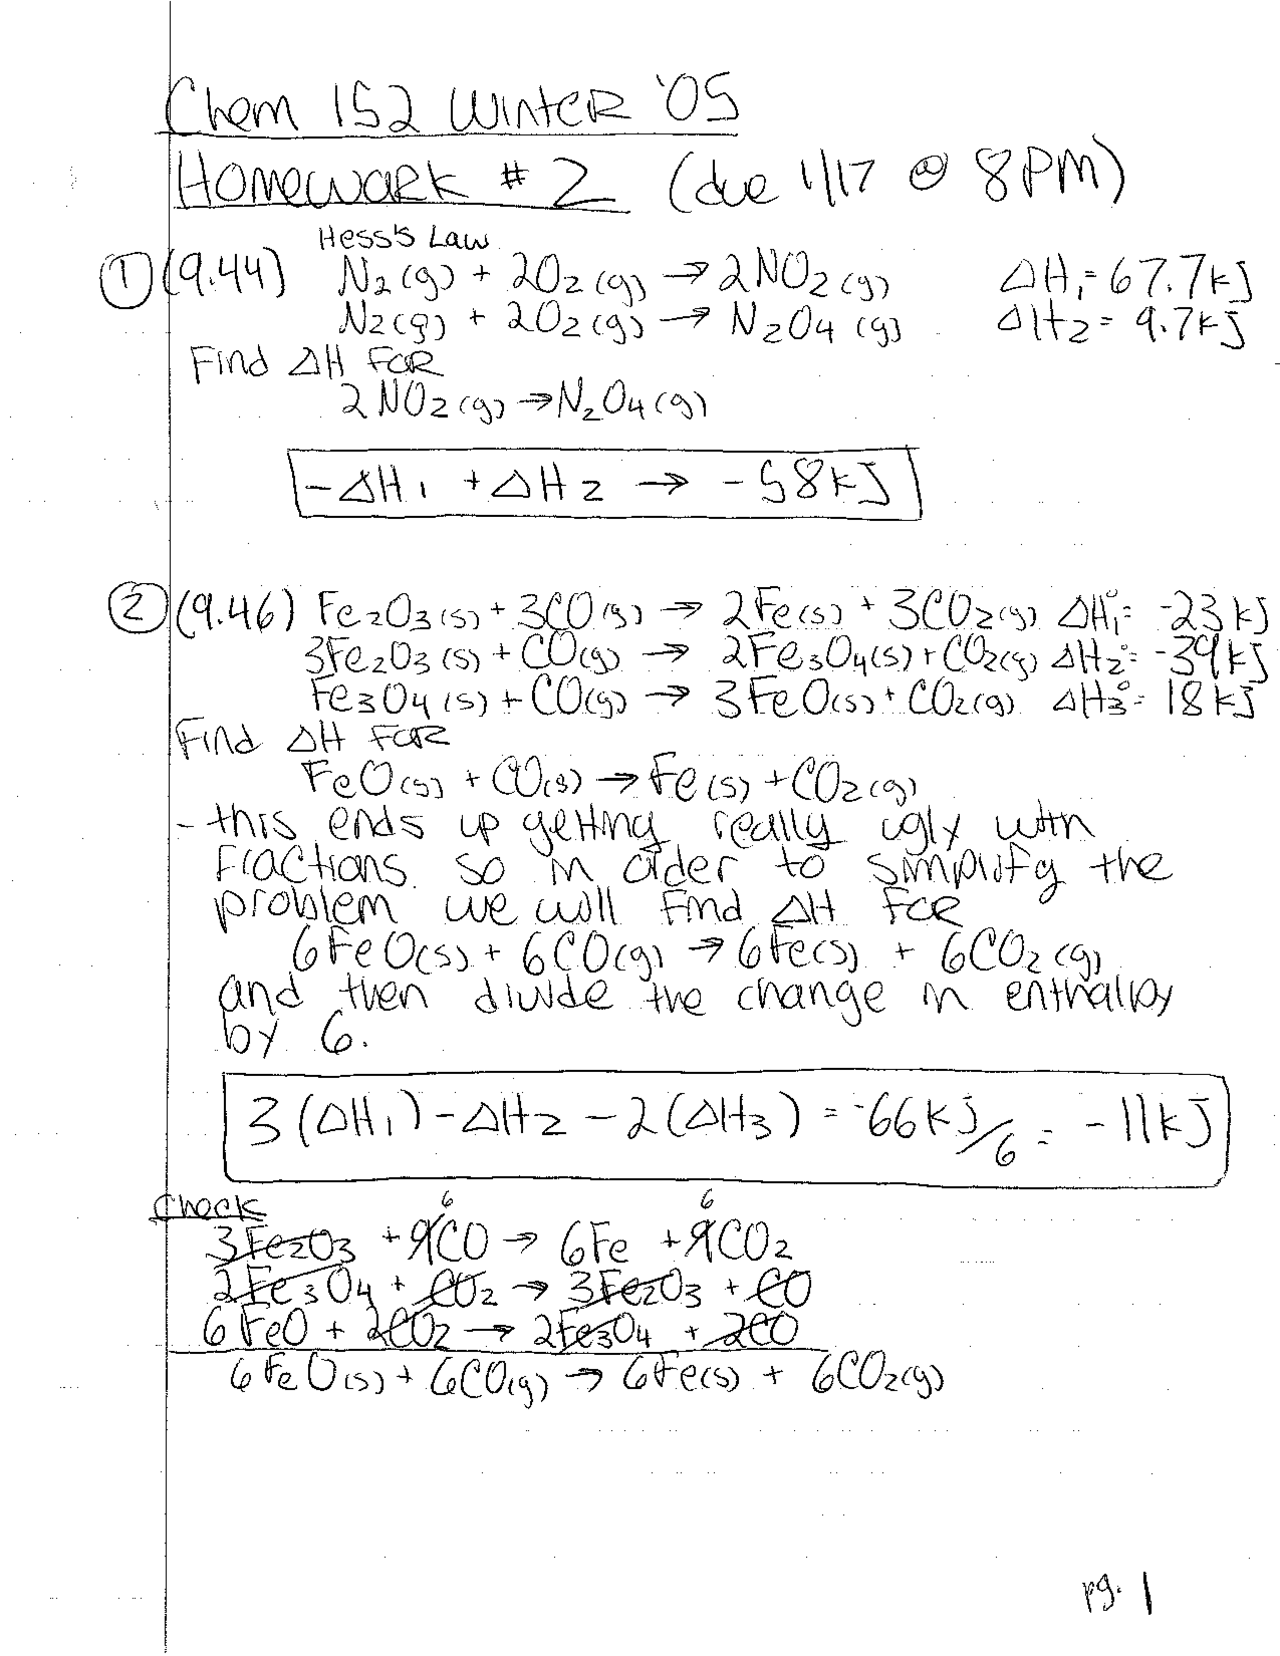 Chem 152 Winter '05
Homework # 2 (due 1/17 @ 8PM)
Hess's Law
① (9.44) N₂(g) + 2O₂(g) → 2NO₂(g) ΔH₁ = 67.7kJ
N₂(g) + 2O₂(g) → N₂O₄(g) ΔH₂ = 9.7kJ
Find ΔH For
2NO₂(g) → N₂O₄(g)
-ΔH₁ + ΔH₂ → -58kJ
② (9.46) Fe₂O₃(s) + 3CO(g) → 2Fe(s) + 3CO₂(g) ΔH₁° = -23kJ
3Fe₂O₃(s) + CO(g) → 2Fe₃O₄(s) + CO₂(g) ΔH₂° = -39kJ
Fe₃O₄(s) + CO(g) → 3FeO(s) + CO₂(g) ΔH₃° = 18kJ
Find ΔH For
FeO(s) + CO(g) → Fe(s) + CO₂(g)
- this ends up getting really ugly with
Fractions so in order to simplify the
problem we will Find ΔH For
6FeO(s) + 6CO(g) → 6Fe(s) + 6CO₂(g)
and then divide the change in enthalpy
by 6.
3(ΔH₁) - ΔH₂ - 2(ΔH₃) = -66kJ/6 = -11kJ
Check
6 6
3Fe₂O₃ + 9CO → 6Fe + 9CO₂
2Fe₃O₄ + CO₂ → 3Fe₂O₃ + CO
6FeO + 2CO₂ → 2Fe₃O₄ + 2CO
6FeO(s) + 6CO(g) → 6Fe(s) + 6CO₂(g)
pg. 1